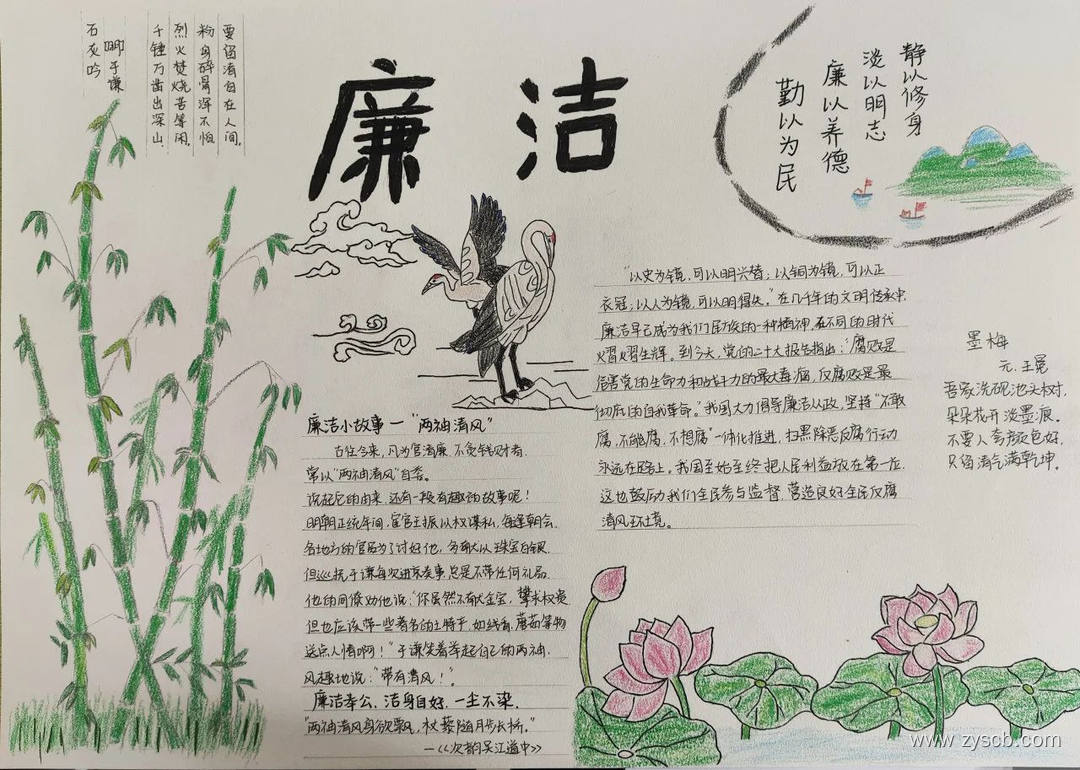 廉 洁
石灰吟
明 于谦
千锤万凿出深山
烈火焚烧若等闲。
粉身碎骨浑不怕
要留清白在人间。
静以修身
淡以明志
廉以养德
勤以为民
廉洁小故事一“两袖清风”
古往今来，凡为官清廉.不贪钱财者.
常以“两袖清风”自誉。
说起它的由来.还有一段有趣的故事呢！
明朝正统年间，宦官王振以权谋私，每逢朝会.
各地方的官臣为了讨好他，多献以珠宝白银.
但巡抚于谦每次进京奏事总是不带任何礼品.
他的同僚劝他说：“你虽然不献金宝，攀求权贵
但也应该带一些著名的土特产，如线香.蘑菇等物
送点人情啊！”于谦笑着举起自己的两袖.
风趣地说：“带有清风！”。
廉洁奉公，洁身自好，一尘不染.
“两袖清风身欲飘，杖藜随月步长桥。”
—《次韵吴江道中》
“以史为镜，可以明兴替；以铜为镜，可以正
衣冠；以人为镜，可以明得失。”在几千年的文明传承中.
廉洁早已成为我们民族的一种精神.在不同的时代
熠熠生辉。到今天，党的二十大报告指出：“腐败是
危害党的生命力和战斗力的最大毒瘤，反腐败是最
彻底的自我革命。”我国大力倡导廉洁从政，坚持“不敢
腐，不能腐，不想腐”一体化推进，扫黑除恶反腐行动
永远在路上。我国至始至终把人民利益放在第一位.
这也鼓励我们全民参与监督.营造良好全民反腐
清风环境。
墨梅
元.王冕
吾家洗砚池头树，
朵朵花开淡墨痕。
不要人夸颜色好，
只留清气满乾坤。
www.zyscb.com